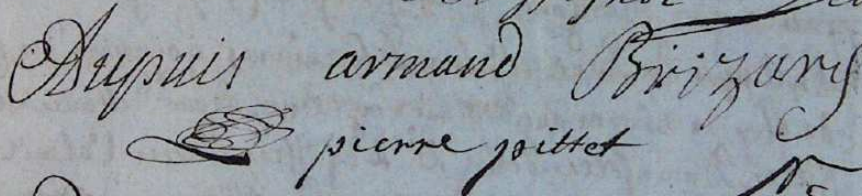 Dupuis armand Brizard
pierre pittet